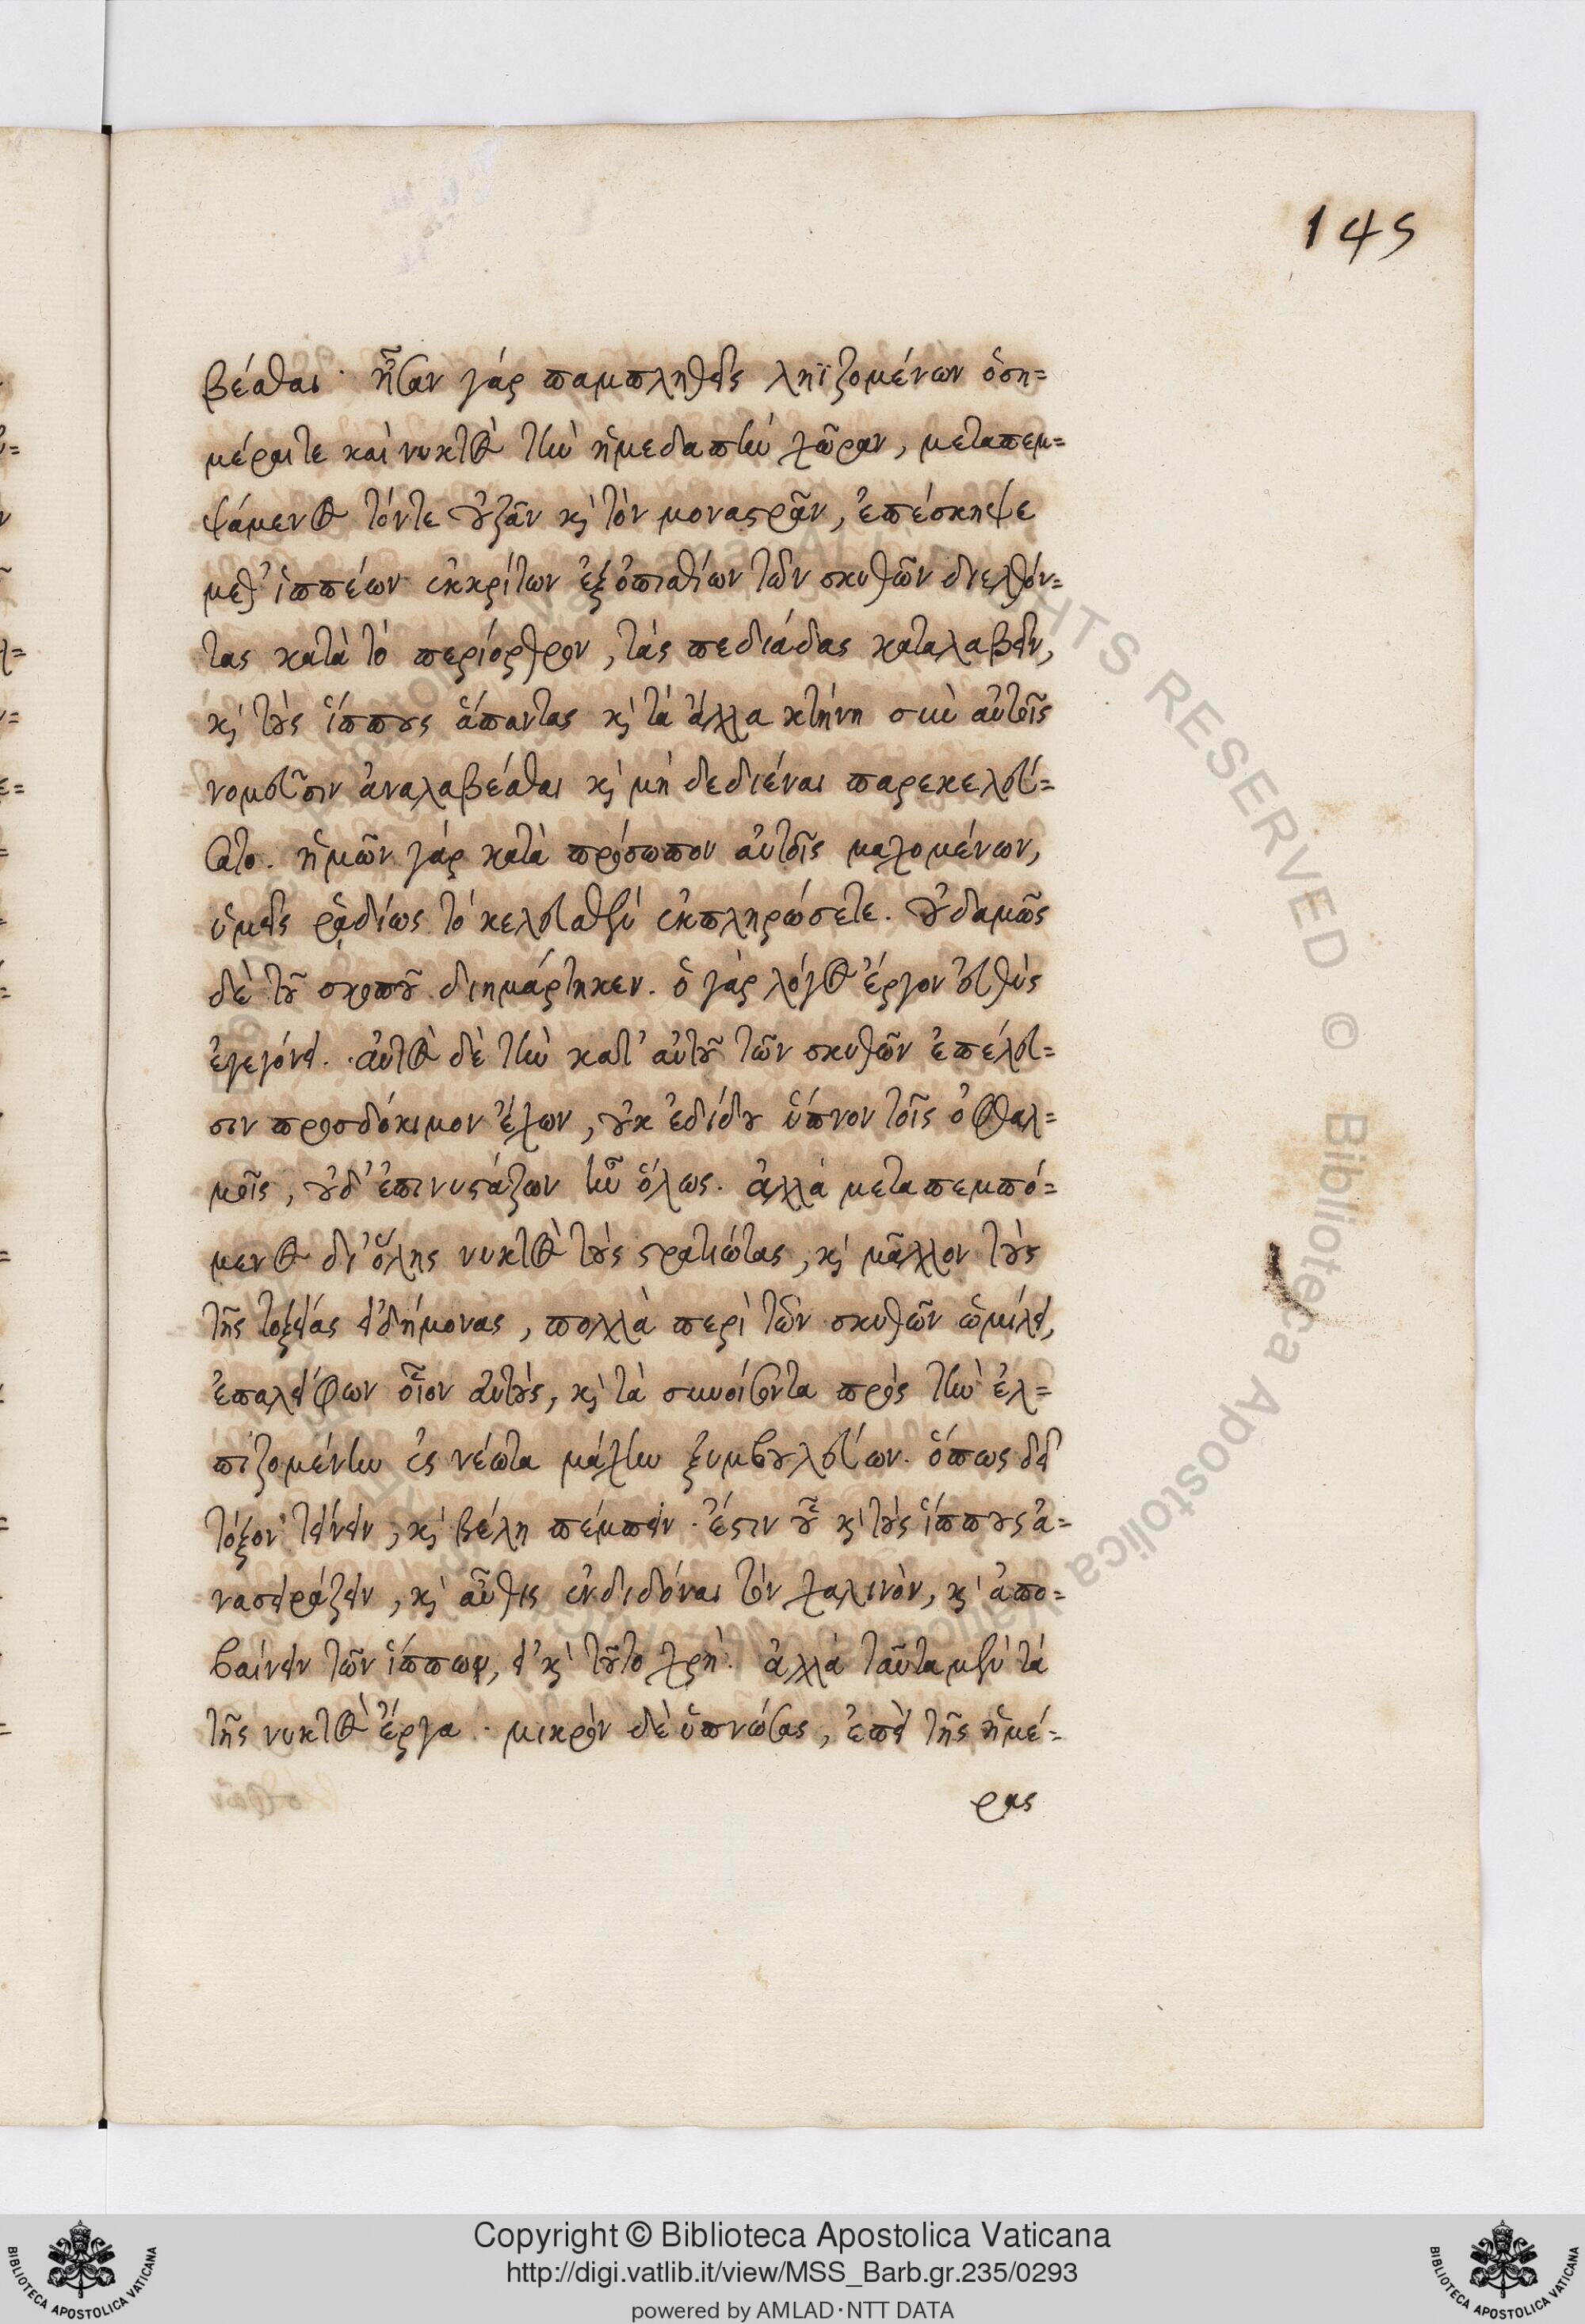 145
βέσθαι· ἦσαν γάρ παμπληθεῖς ληϊζομένων ὁση=
μέραιτε καὶ νυκτὸς τὴν ἡμεδαπὴν χῶραν, μεταπεμ=
ψάμενος τόντε οὐζᾶν κὶ τὸν μοναστρᾶν, ἐπέσκηψε
μεθ' ἱππέων ἐκκρίτων ἐξόπισθίων τῶν σκυθῶν διελθόν=
τας κατὰ τὸ περίορθρον, τὰς πεδιάδας καταλαβεῖν,
κὶ τοὺς ἵππους ἅπαντας κὶ τὰ ἄλλα κτήνη σὺν αὐτοῖς
νομεῦσιν ἀναλαβέσθαι κὶ μὴ δεδιέναι παρεκελεύ=
σατο. ἡμῶν γάρ κατὰ πρόσωπον αὐτοῖς μαχομένων,
ὑμεῖς ῥᾳδίως τὸ κελευσθὲν ἐκπληρώσετε. οὐδαμῶς
δὲ τοῦ σκοποῦ διημάρτηκεν. ὁ γὰρ λόγος ἔργον εὐθὺς
ἐγεγόνει. αὐτὸς δὲ τὴν κατ' αὐτοῦ τῶν σκυθῶν ἐπέλευ=
σιν προσδόκιμον ἔχων, οὐκ ἐδίδου ὕπνον τοῖς ὀφθαλ=
μοῖς, οὐδ' ἐπινυστάζων ἦν ὅλως. ἀλλὰ μεταπεμπό=
μενος δι' ὅλης νυκτὸς τοὺς στρατιώτας, κὶ μᾶλλον τοὺς
τῆς τοξείας εἰδήμονας, πολλὰ περὶ τῶν σκυθῶν ὡμίλει,
ἐπαλείφων οἷον αὐτούς, κὶ τὰ συνοίσοντα πρὸς τὴν ἐλ=
πιζομένην ἐς νέωτα μάχην ξυμβουλεύων. ὅπως δεῖ
τόξον τείνειν, κὶ βέλη πέμπειν. ἔστιν οὗ κὶ τοὺς ἵππους ἀ=
νασειράζειν, κὶ αὖθις ἐνδιδόναι τὸν χαλινὸν, κὶ ἀπο=
βαίνειν τῶν ἵππων, εἰ κὶ τοῦτο χρή. ἀλλὰ ταῦτα μὲν τὰ
τῆς νυκτὸς ἔργα. μικρὸν δὲ ὑπνώσας, ἐπεὶ τῆς ἡμέ=
ρας
Copyright © Biblioteca Apostolica Vaticana
http://digi.vatlib.it/view/MSS_Barb.gr.235/0293
powered by AMLAD·NTT DATA
BIBLIOTECA APOSTOLICA VATICANA
BIBLIOTECA APOSTOLICA VATICANA